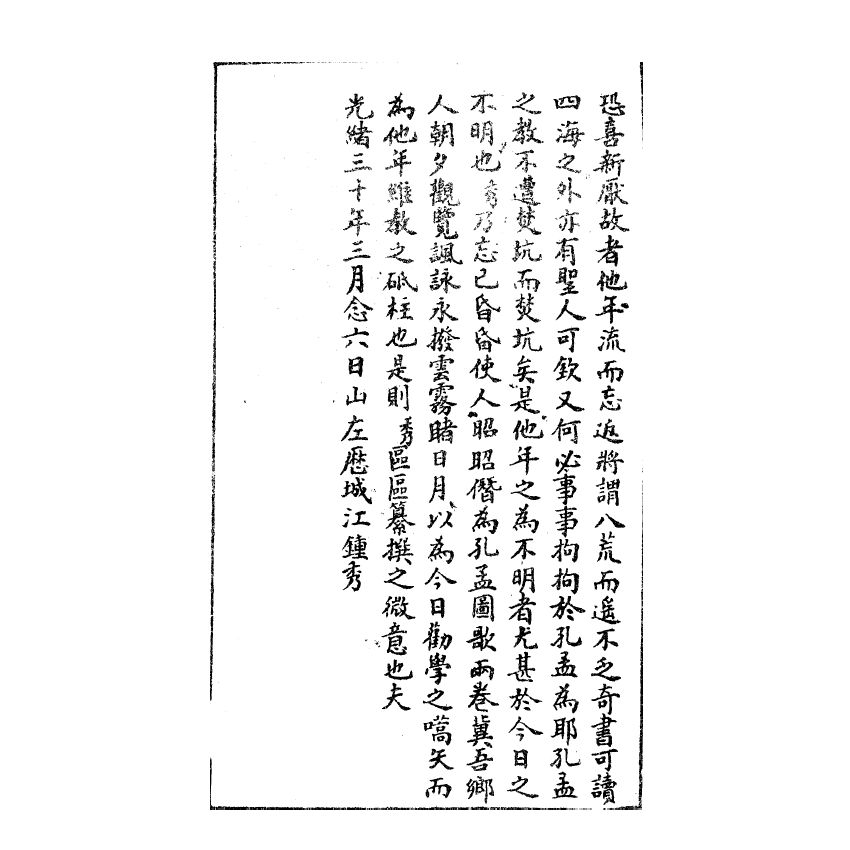 恐喜新厭故者他年流而忘返將謂八荒而遙不乏奇書可讀
四海之外亦有聖人可欽又何必事事拘拘於孔孟為耶孔孟
之教不遭焚坑而焚坑矣是他年之為不明者尤甚於今日之
不明也秀乃忘己昏昏使人昭昭僭為孔孟圖歌兩卷冀吾鄉
人朝夕觀覽諷詠永撥雲霧睹日月以為今日勸學之嚆矢而
為他年維教之砥柱也是則秀區區纂撰之微意也夫
光緒三十年三月念六日山左歷城江鍾秀